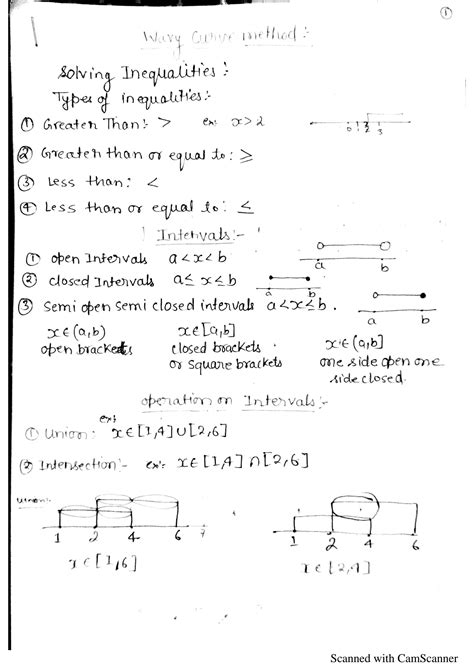 ①
Wavy Curve method :-
Solving Inequalities :-
Types of inequalities :-
① Greater Than :- > ex: x>2
0 1 2 3
② Greater than or equal to : ≥
③ Less than : <
④ Less than or equal to : ≤
Intervals :-
① open Intervals a<x<b
a b
② closed Intervals a≤x≤b
a b
③ Semi open Semi closed intervals a<x≤b.
a b
x∈(a,b) x∈[a,b] x∈(a,b]
open brackets closed brackets one side open one
or square brackets side closed.
operation on Intervals :-
① Union : ex: x∈[1,4]∪[2,6]
② Intersection :- ex: x∈[1,4]∩[2,6]
Union:-
1 2 4 6 7
1 2 4 6
x∈[1,6] x∈[2,4]
Scanned with CamScanner